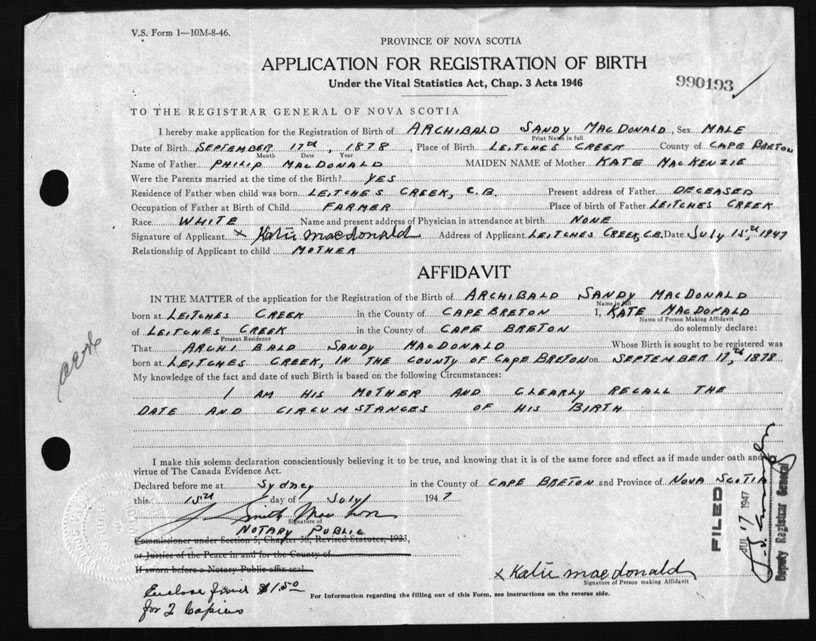 V.S. Form 1—10M-8-46.
PROVINCE OF NOVA SCOTIA
APPLICATION FOR REGISTRATION OF BIRTH
Under the Vital Statistics Act, Chap. 3 Acts 1946
990193
TO THE REGISTRAR GENERAL OF NOVA SCOTIA
I hereby make application for the Registration of Birth of ARCHIBALD SANDY MACDONALD, Sex MALE
Print Name in full
Date of Birth SEPTEMBER 17th, 1878, Place of Birth LEITCHES CREEK County of CAPE BRETON
Month Date Year
Name of Father PHILIP MACDONALD MAIDEN NAME of Mother KATE MACKENZIE
Were the Parents married at the time of the Birth? YES
Residence of Father when child was born LEITCHES CREEK, C.B. Present address of Father DECEASED
Occupation of Father at Birth of Child FARMER Place of birth of Father LEITCHES CREEK
Race WHITE Name and present address of Physician in attendance at birth NONE
Signature of Applicant x Katie macdonald Address of Applicant LEITCHES CREEK, C.B. Date July 15th, 1947
Relationship of Applicant to child MOTHER
AFFIDAVIT
IN THE MATTER of the application for the Registration of the Birth of ARCHIBALD SANDY MACDONALD
Name in full
born at LEITCHES CREEK in the County of CAPE BRETON I, KATE MACDONALD
Name of Person Making Affidavit
of LEITCHES CREEK in the County of CAPE BRETON do solemnly declare:
Present Residence
That ARCHIBALD SANDY MACDONALD Whose Birth is sought to be registered was
born at LEITCHES CREEK, IN THE COUNTY OF CAPE BRETON on SEPTEMBER 17th, 1878
My knowledge of the fact and date of such Birth is based on the following Circumstances:
I AM HIS MOTHER AND CLEARLY RECALL THE
DATE AND CIRCUMSTANCES OF HIS BIRTH
I make this solemn declaration conscientiously believing it to be true, and knowing that it is of the same force and effect as if made under oath and
virtue of The Canada Evidence Act.
Declared before me at Sydney in the County of CAPE BRETON and Province of NOVA SCOTIA
this 15th day of July 1947
J. Smith
Signature of
NOTARY PUBLIC
Commissioner under Section 5, Chapter 38, Revised Statutes, 1923,
or Justice of the Peace in and for the County of
If sworn before a Notary Public affix seal.
x Katie macdonald
Signature of Person making Affidavit
Enclose find $1.50
for 2 Copies
For Information regarding the filling out of this Form, see instructions on the reverse side.
FILED
JUL 17 1947
Deputy Registrar General